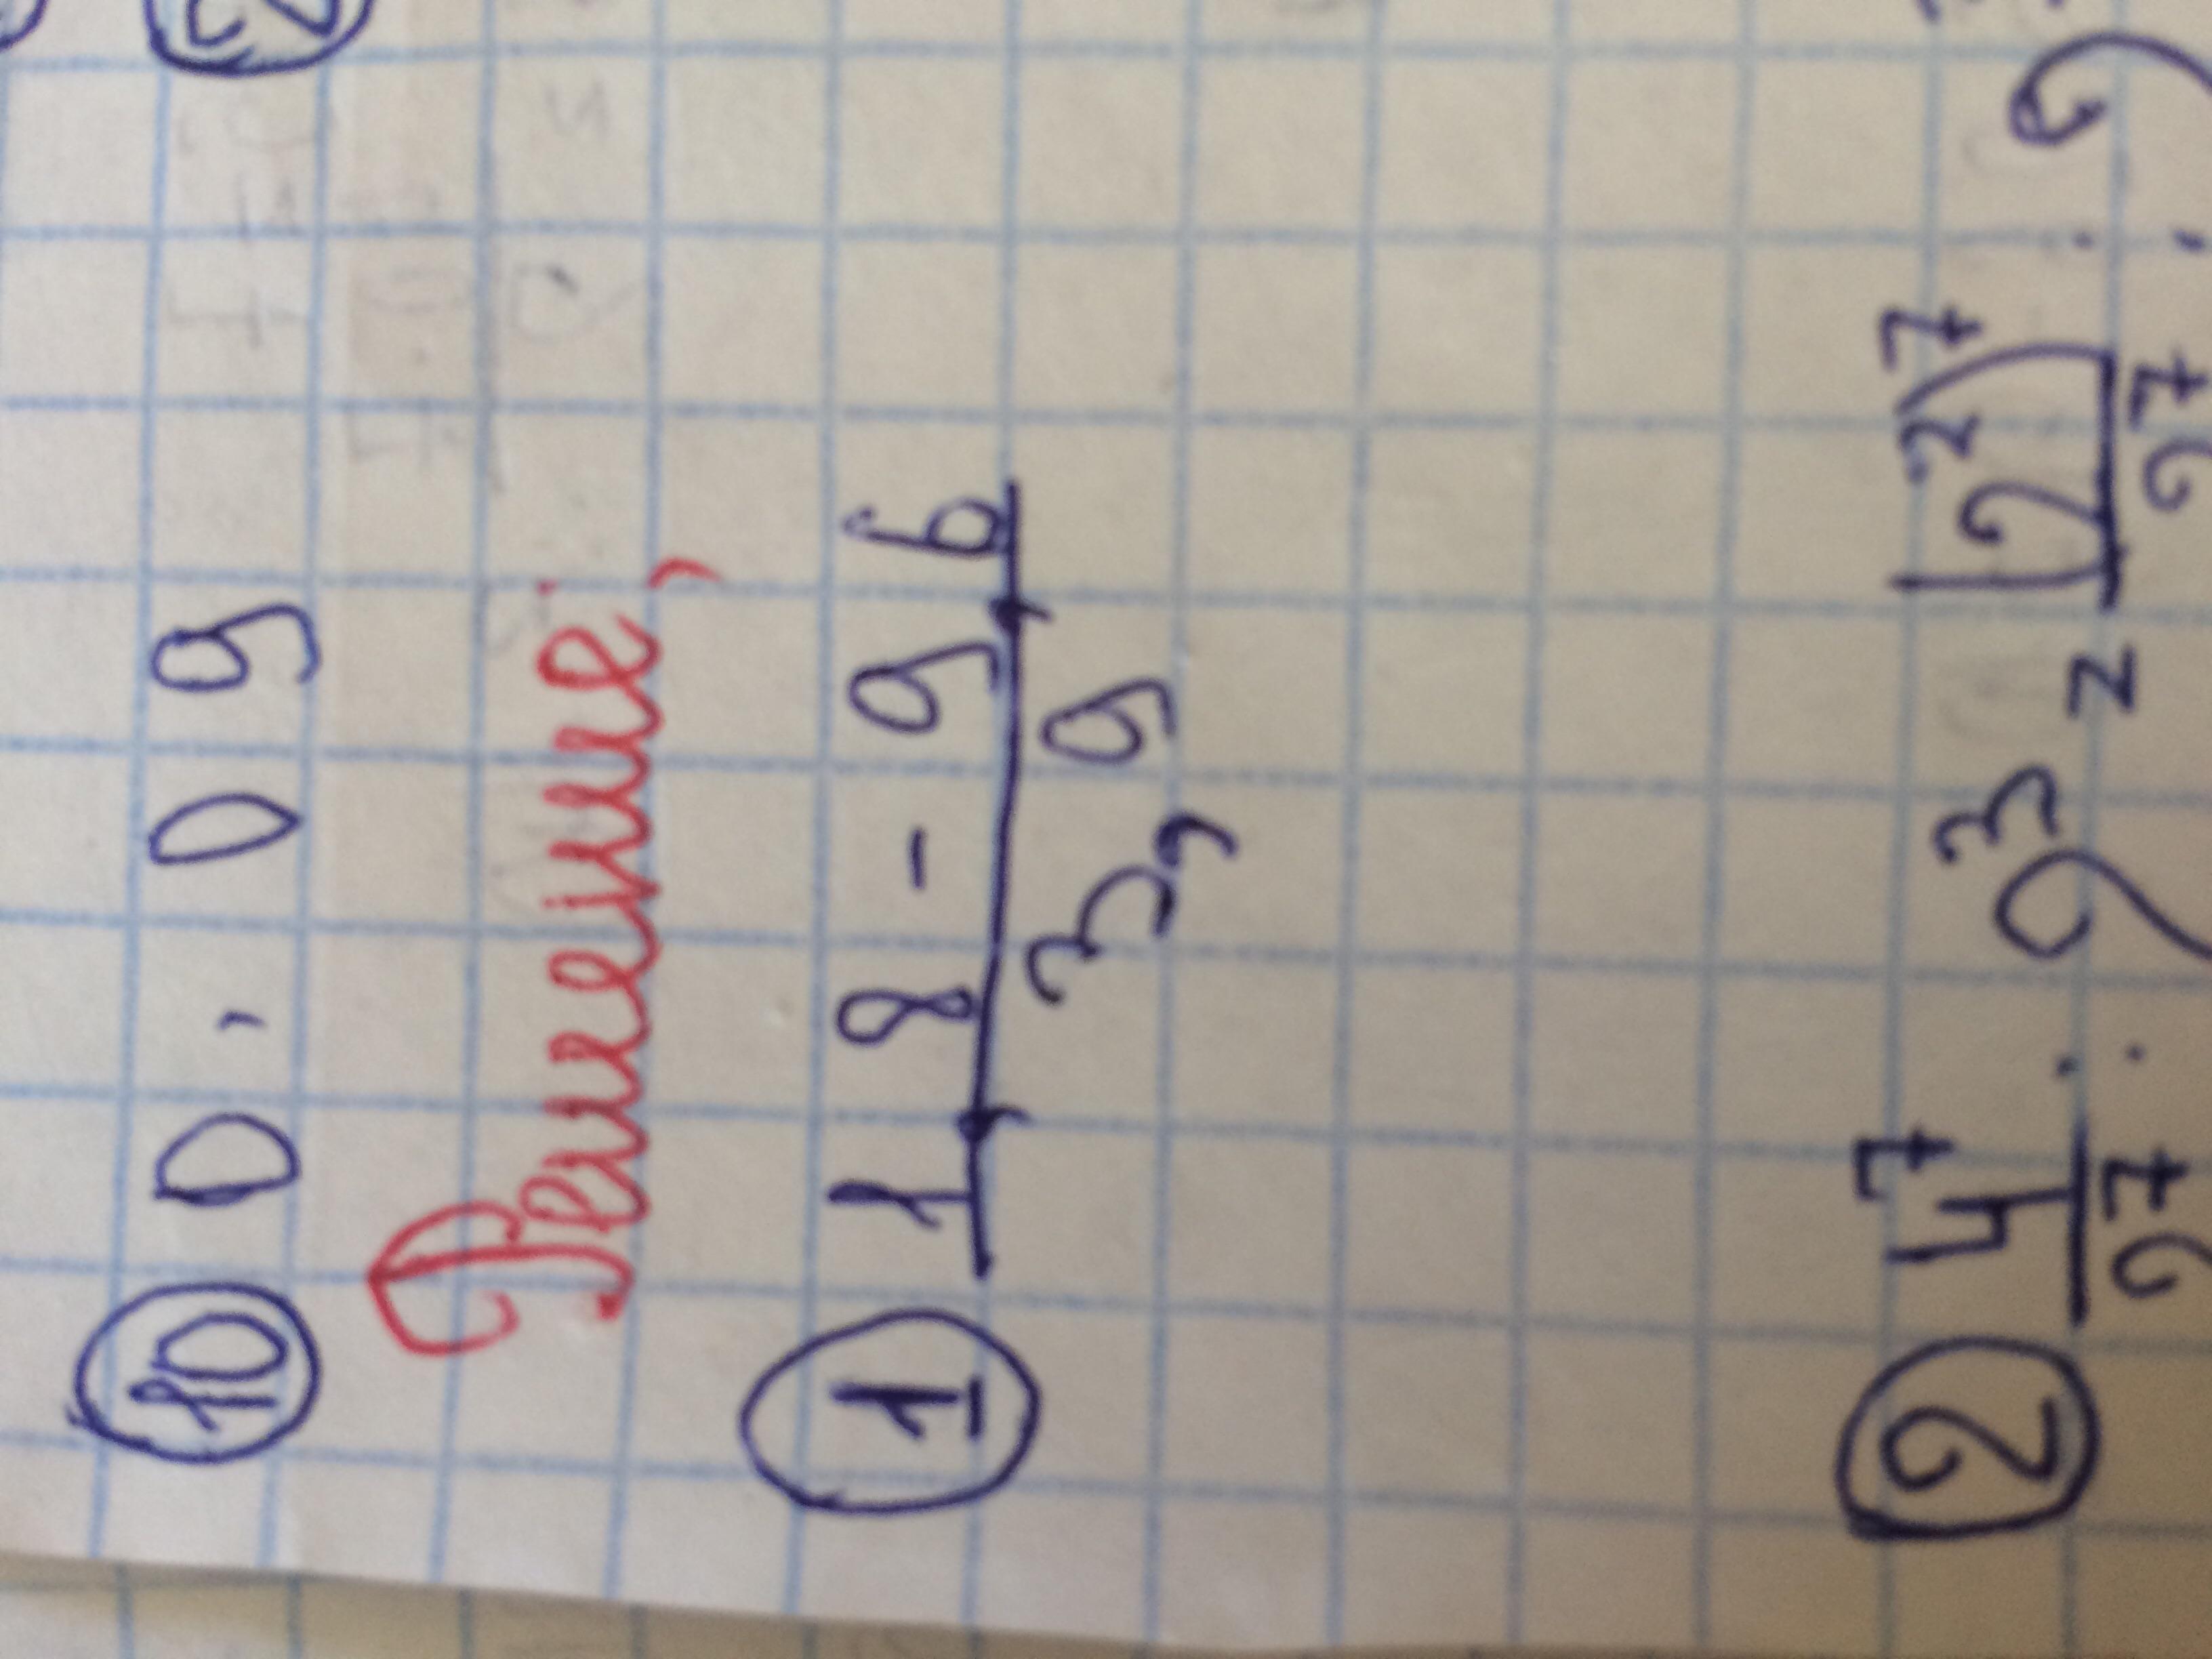 ⑩ 0,09
Решение,
① 1,8-9,6
3,9
② 4⁷ : 2³ = (2²)⁷ : 2
2⁷ 2⁷